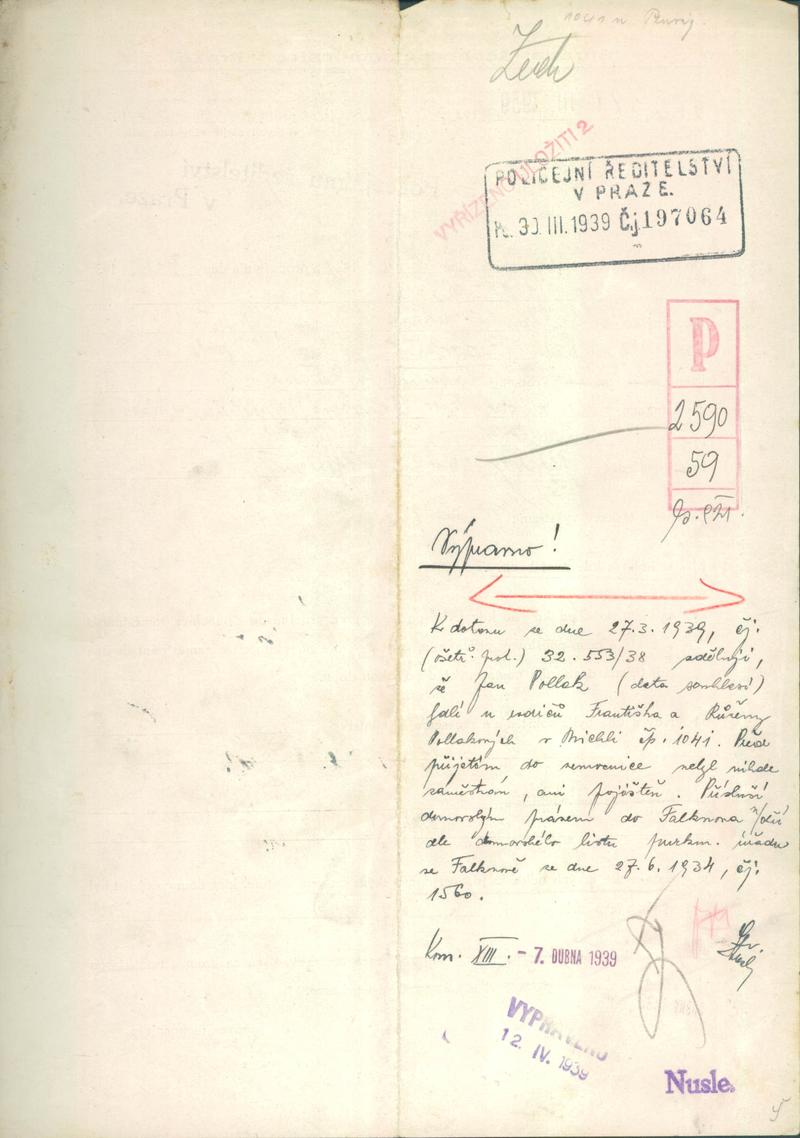 VYŘÍZENO ULOŽITI 2
POLICEJNÍ ŘEDITELSTVÍ
V PRAZE.
30. III. 1939 Čj 197064
P
2590
59
K dotazu ze dne 27.3.1939, čj.
(ošetř. pol.) 32.553/38 sděluji,
že Jan Pollak (data souhlasí)
bdlí u rodičů Františka a Růženy
Pollakových v Michli čp. 1041. Před
přijetím do nemocnice nebyl nikde
zaměstnán, ani pojištěn. Přísluší
domovským právem do Falknova n/Oří
dle domovského listu purkm. úřadu
ve Falknově ze dne 27.6.1934, čj.
1560.
Kom. XIII. - 7. DUBNA 1939
VYPRAVENO
12. IV. 1939
Nusle.